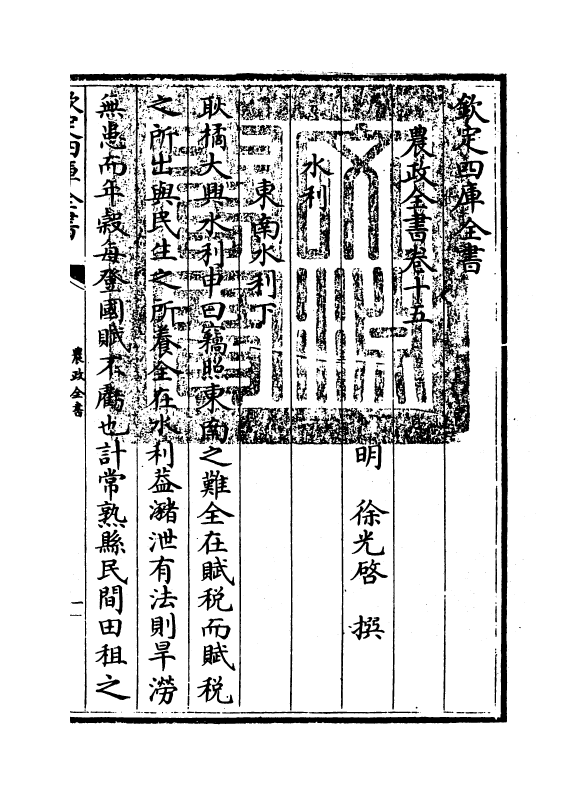 欽定四庫全書
農政全書卷十五
明 徐光啓 撰
水利
東南水利下
耿橘大興水利申曰竊照東南之難全在賦稅而賦稅
之所出與民生之所養全在水利葢瀦泄有法則旱澇
無患而年穀每登國賦不虧也計常熟縣民間田租之
欽定四庫全書
農政全書
一